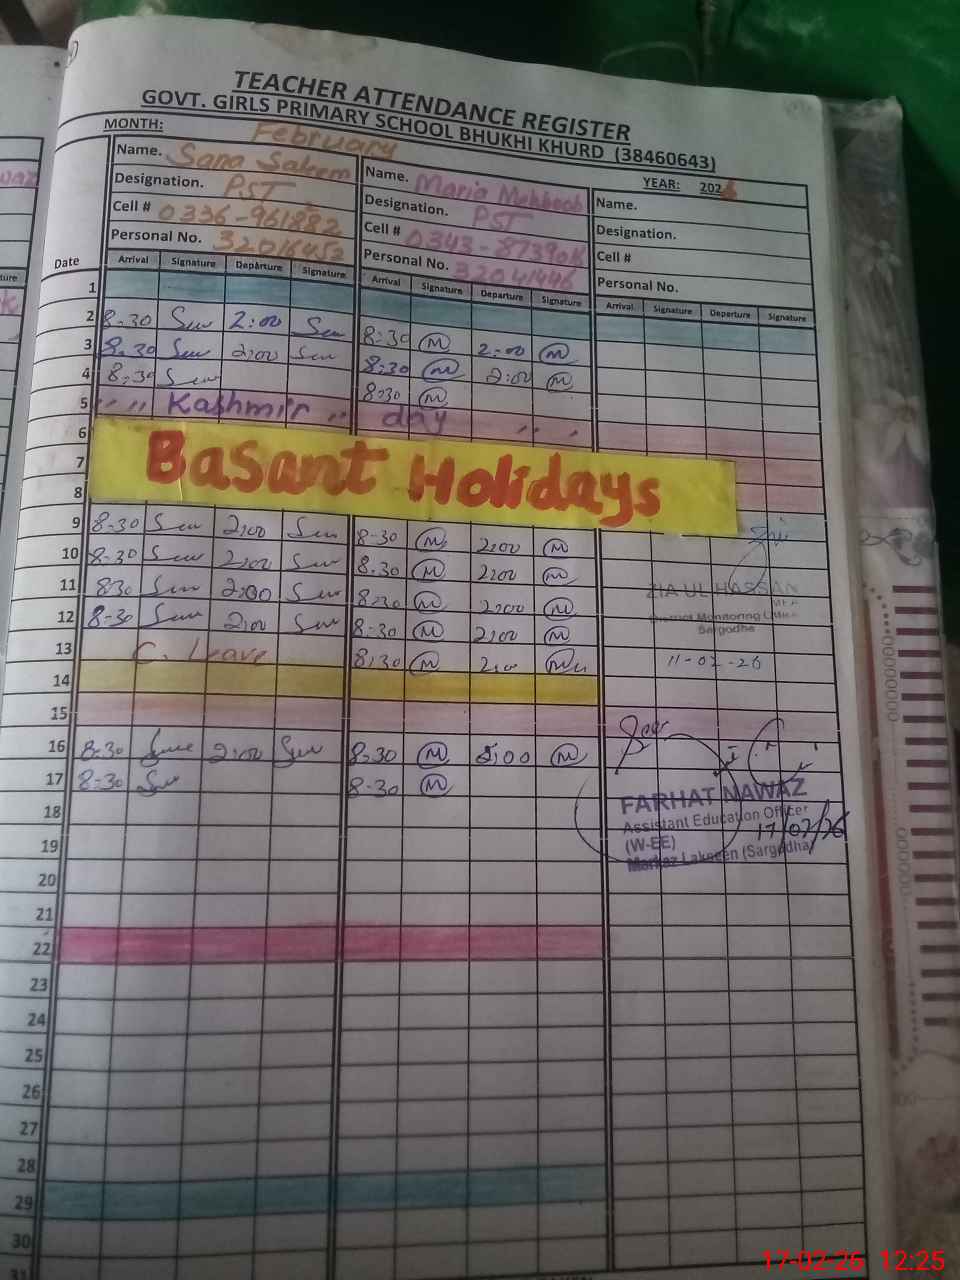 TEACHER ATTENDANCE REGISTER
GOVT. GIRLS PRIMARY SCHOOL BHUKHI KHURD (38460643)
MONTH: February YEAR: 2026
Name. Sana Saleem Name. Maria Mehboob Name.
Designation. PST Designation. PST Designation.
Cell # 0336-961882 Cell # Cell #
Personal No. 32016452 Personal No. 32041446 Personal No.
Date Arrival Signature Departure Signature Arrival Signature Departure Signature Arrival Signature Departure Signature
1
2 8-30 2:00 8:30 M 2:00 M
3 8:30 2:00 8:30 M 2:00 M
4 8:30 8:30 M
5 Kashmir day
6
7 Basant Holidays
8
9 8-30 2:00 8-30 M 2:00 M
10 8-30 2:00 8:30 M 2:00 M
11 8:30 2:00 8:30 M 2:00 M
12 8-30 2:00 8-30 M 2:00 M
13 C. Leave 8:30 M 2:00
14
15
16 8:30 2:00 8:30 M 2:00 M
17 8:30 8-30 M
18
19
20
21
22
23
24
25
26
27
28
29
30
31
ZIA UL HASSAN
District Monitoring Officer
Sargodha
11-02-26
FARHAT NAWAZ
Assistant Education Officer
(W-EE)
Markaz Lakseen (Sargodha)
17/02/26
17-02-26 12:25